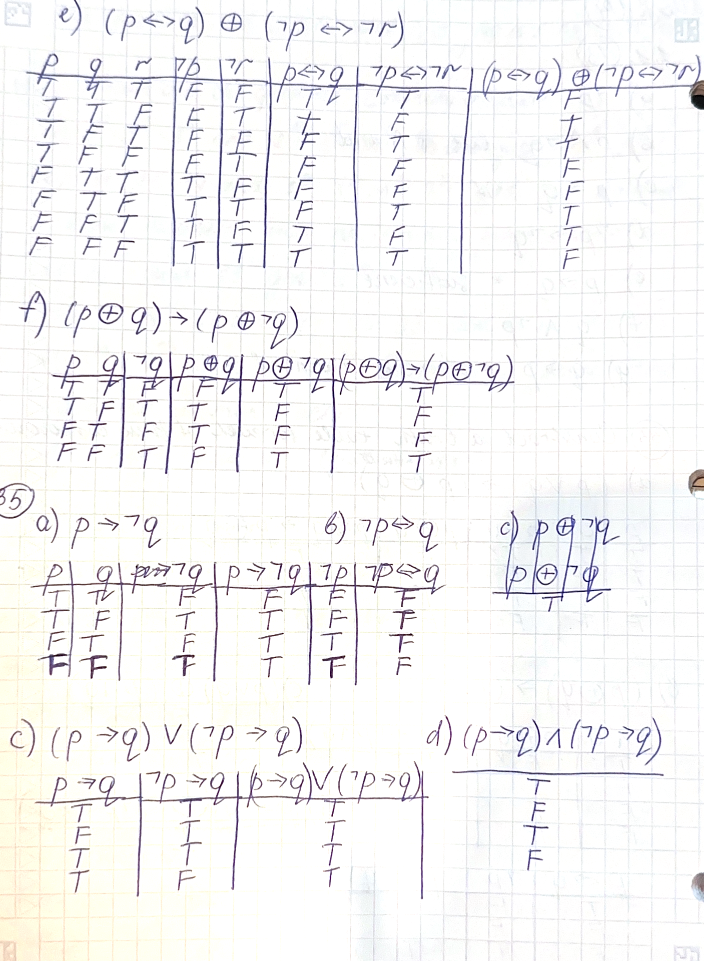 e) (p ↔ q) ⊕ (¬p ↔ ¬r)
p q r ¬p ¬r p↔q ¬p↔¬r (p↔q) ⊕ (¬p↔¬r)
T T T F F T T F
T T F F T T F T
T F T F F F T T
T F F F T F F F
F T T T F F F F
F T F T T F T T
F F T T F T F T
F F F T T T T F
f) (p ⊕ q) → (p ⊕ ¬q)
p q ¬q p⊕q p⊕¬q (p⊕q)→(p⊕¬q)
T T F F T T
T F T T F F
F T F T F F
F F T F T T
35
a) p → ¬q b) ¬p ↔ q c) p ⊕ ¬q
p q ¬q p→¬q ¬p ¬p↔q p ⊕ ¬q
T T F F F F T
T F T T F T
F T F T T T
F F T T T F
c) (p → q) ∨ (¬p → q) d) (p → q) ∧ (¬p → q)
p→q ¬p→q (p→q)∨(¬p→q)
T T T T
F T T F
T T T T
T F T F